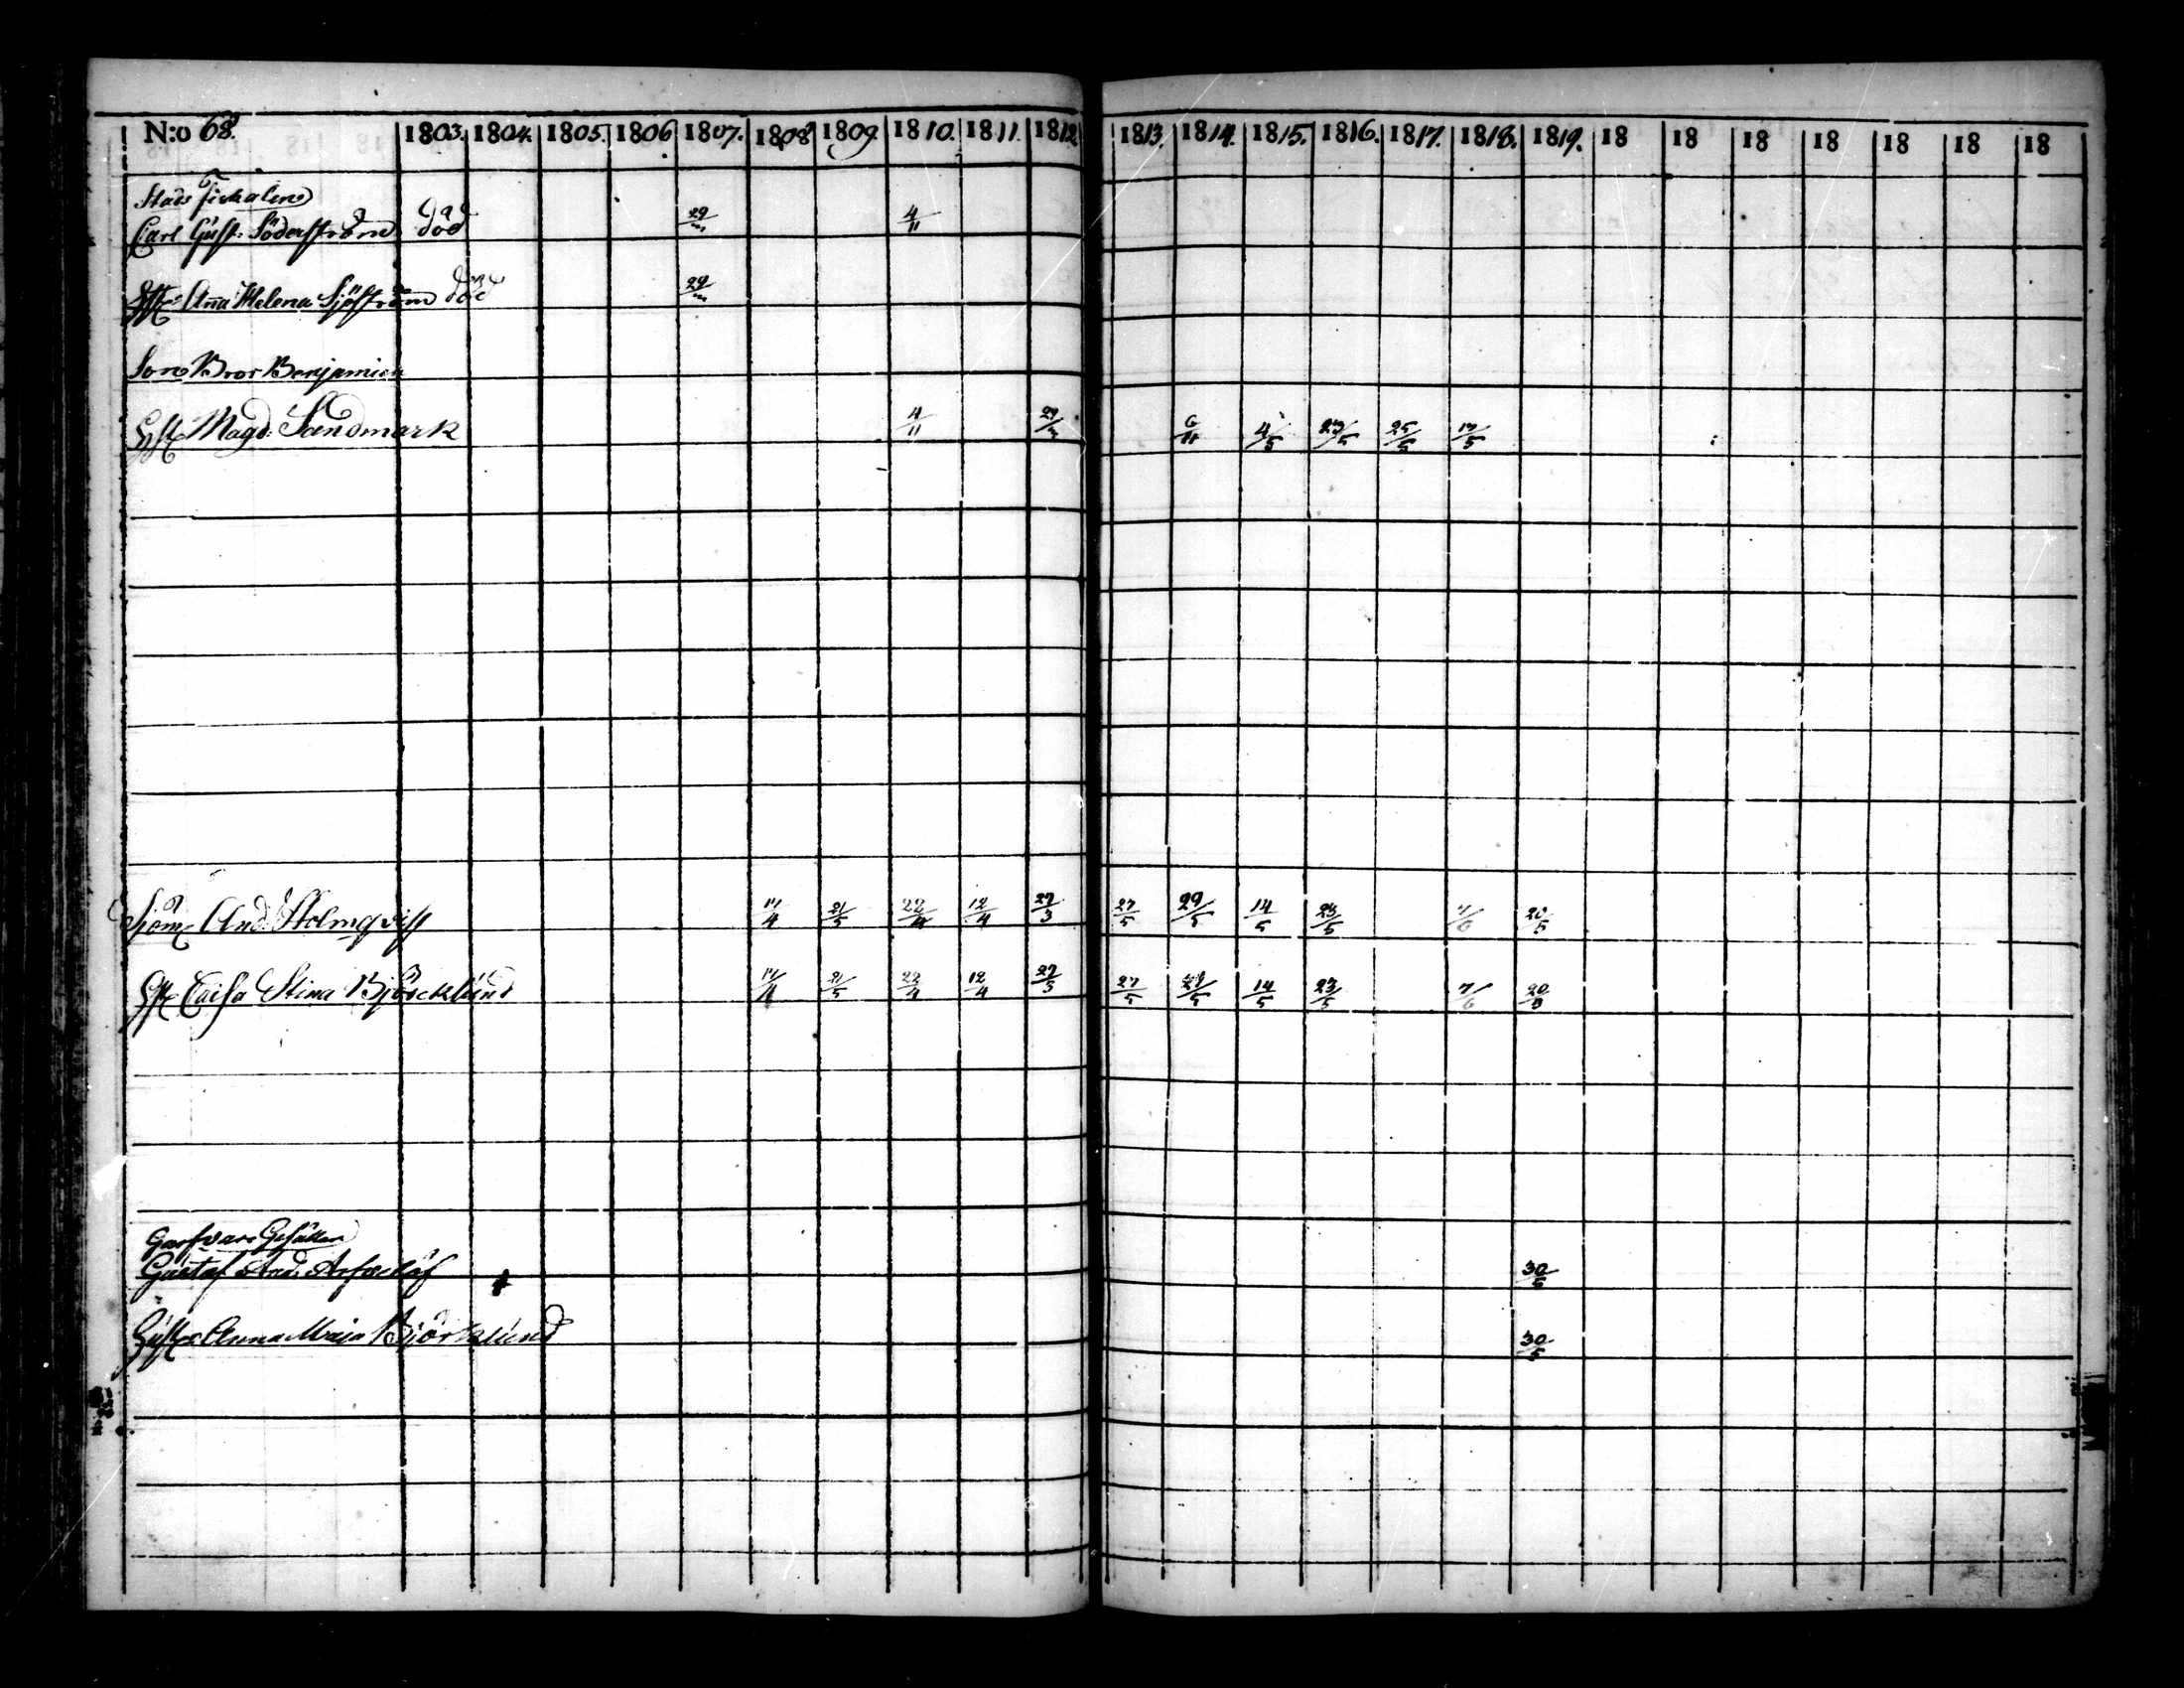 N:o 68. 1803. 1804. 1805. 1806 1807. 1808 1809. 1810. 1811. 1812 1813. 1814. 1815. 1816. 1817. 1818. 1819. 18 18 18 18 18 18 18
Stads Fiskalen
Carl Gust: Söderström död 29/3 4/11
Anna Helena Sjöström död 29/3
Son Bror Benjamin
Magd: Sandmark 4/11 6/11 4/5 23/5 25/5 17/5
Sjöm And: Holmqvist 17/4 21/5 22/4 12/4 27/3 27/5 29/5 14/5 23/5 7/6 20/5
Caisa Stina Björcklund 17/4 21/5 22/4 12/4 27/3 27/5 29/5 14/5 23/5 7/6 20/5
Garfvare Gesällen
Gustaf And: 30/5
Anna Maja Björklund 30/5